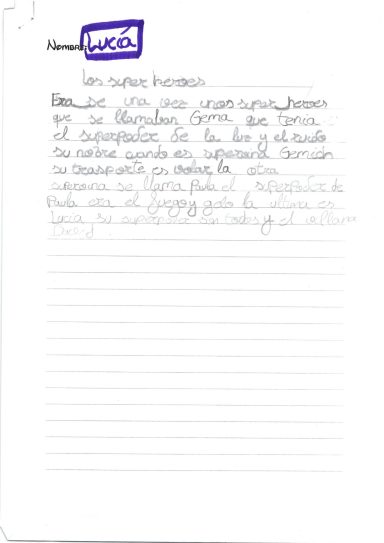 NOMBRE: Lucía
Los super heroes
Era se una vez unos super heroes
que se llamaban Gema que tenía
el superpoder de la luz y el
su nobre cuando es superoina
su trasporte es volar la otra
superoina se llama Paula el superpoder de
Paula era el fuego y la ultima es
Lucía su superpoder son todos y el villano